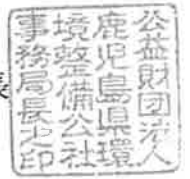 公益財団法人
鹿児島県環
境整備公社
事務局長之印
長